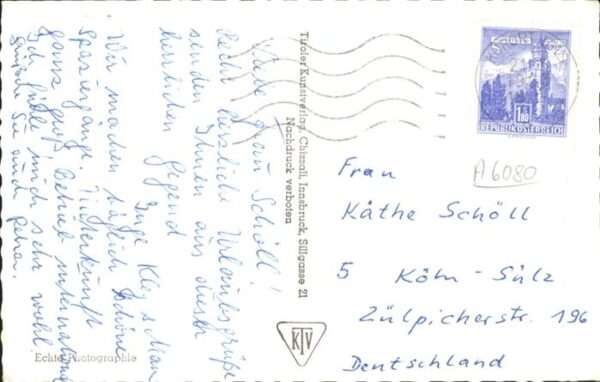 Liebe Frau Schöll!
Recht herzliche Urlaubsgrüße
senden Ihnen aus dieser
herrlichen Gegend
Inge
Wir machen täglich schöne
Spaziergänge
ganz groß
Ich fühle mich sehr wohl
Tiroler Kunstverlag, Chizzali, Innsbruck, Sillgasse 21
Nachdruck verboten
KTV
Echte Photographie
1.80
REPUBLIK ÖSTERREICH
A6080
Frau
Käthe Schöll
5 Köln - Sülz
Zülpicherstr. 196
Deutschland